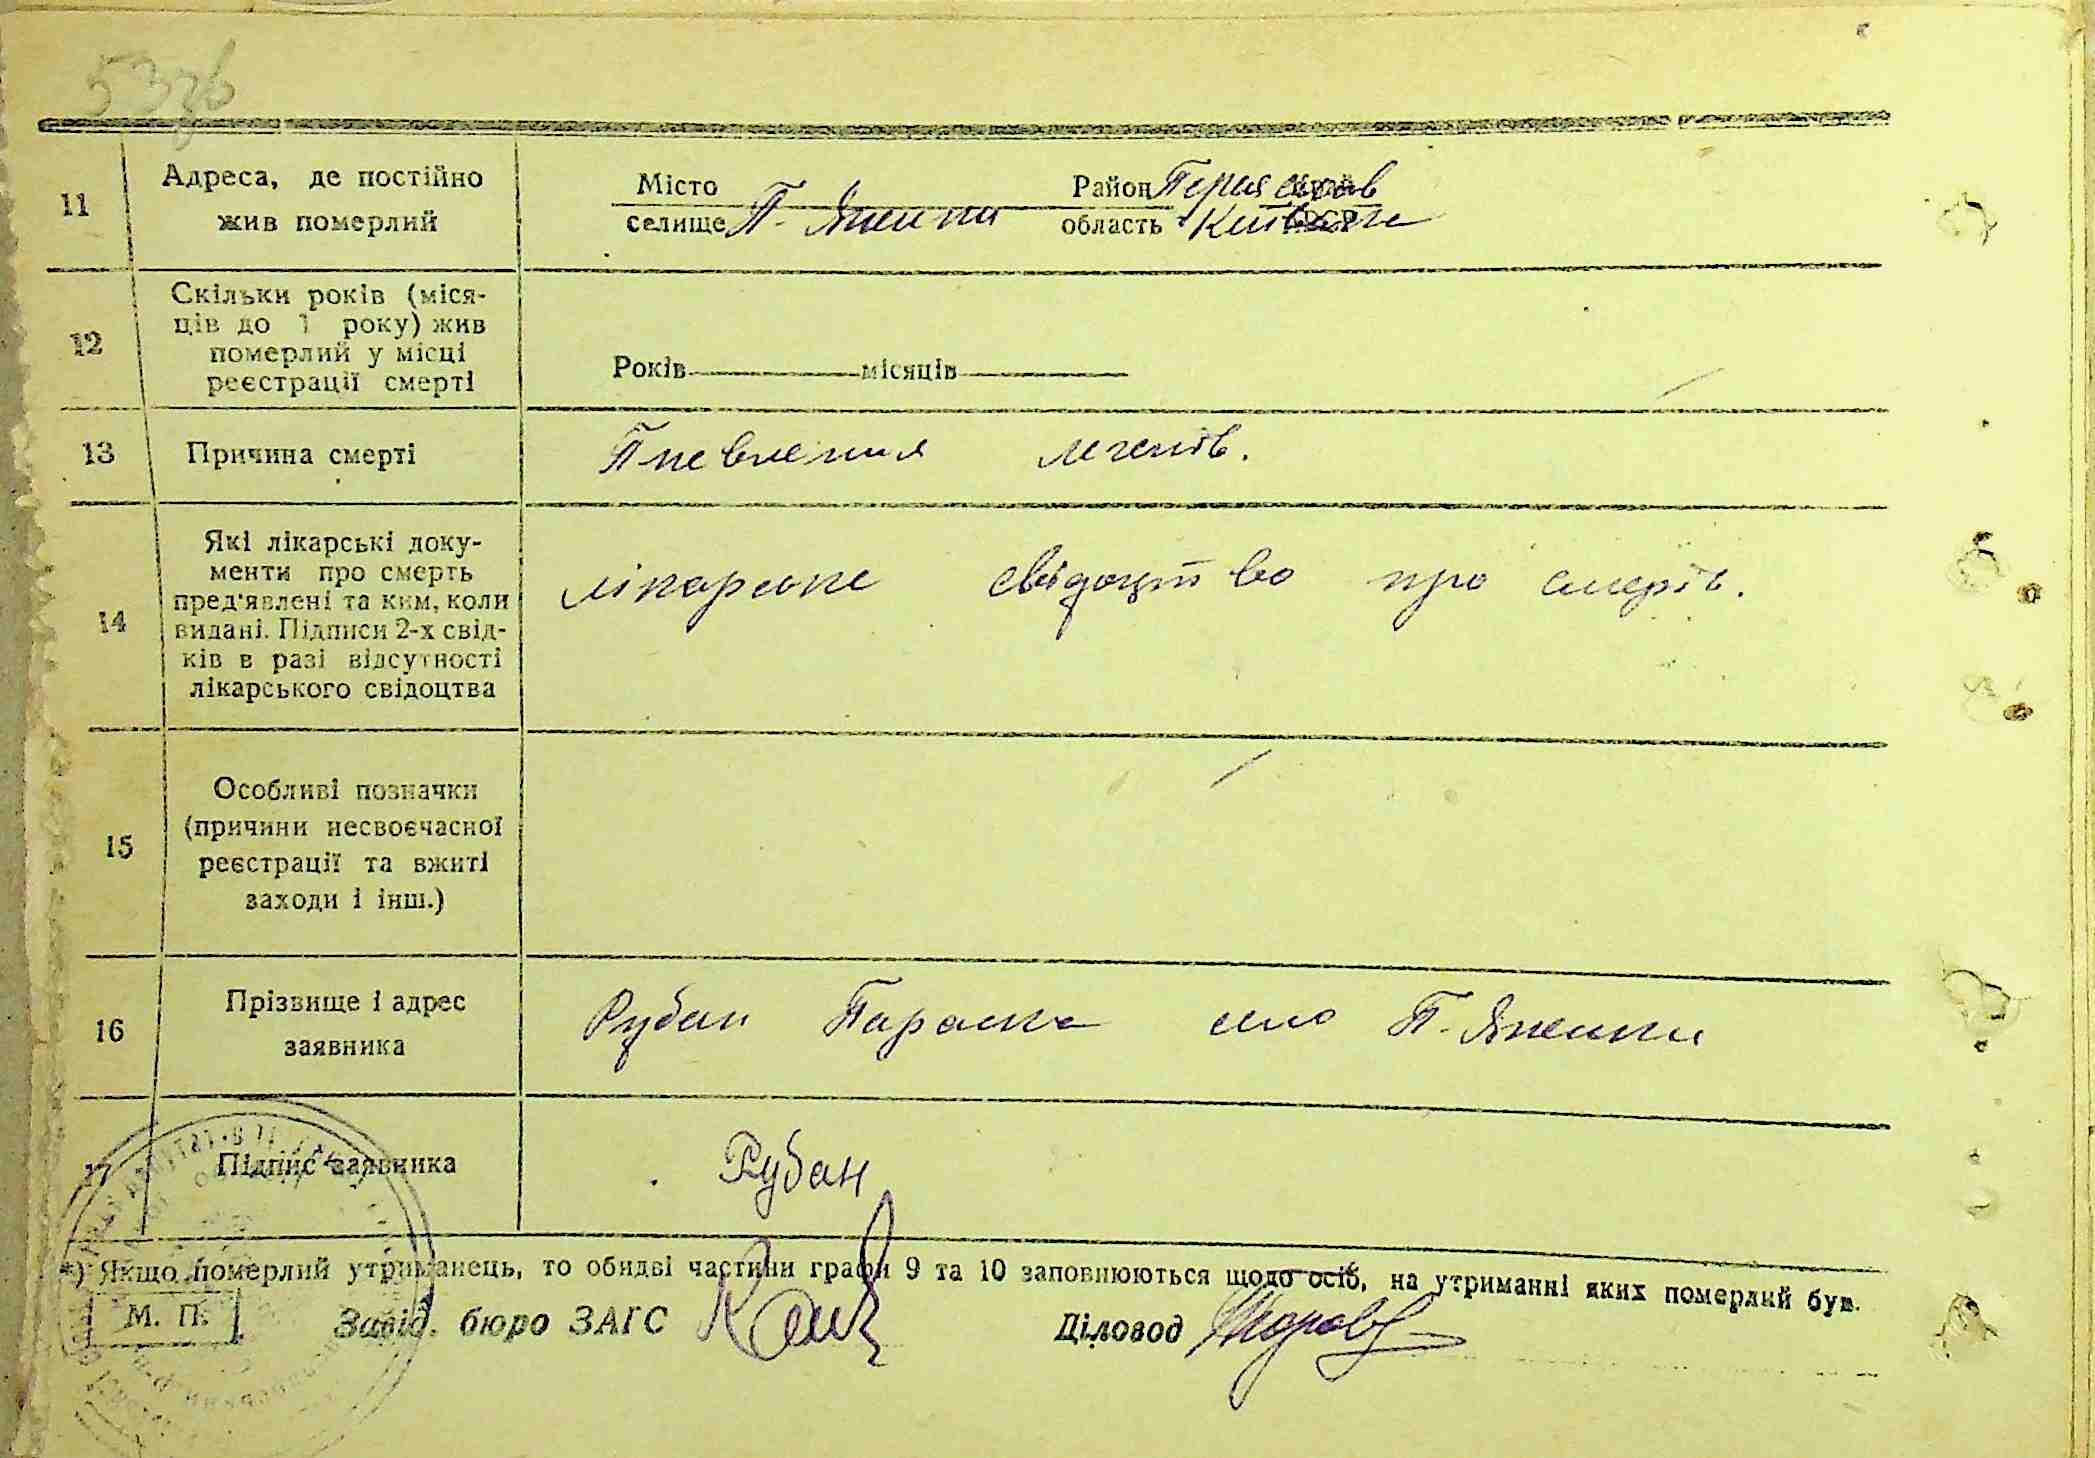 53зв
11
Адреса, де постійно
жив померлий
Місто
Район Переяслав край
селище П. Яненки область Київська
12
Скільки років (міся-
ців до 1 року) жив
померлий у місці
реєстрації смерті
Років місяців
13
Причина смерті
Пневмения легенів.
14
Які лікарські доку-
менти про смерть
пред'явлені та ким, коли
видані. Підписи 2-х свід-
ків в разі відсутності
лікарського свідоцтва
лікарське свідоцтво про смерть.
15
Особливі позначки
(причини несвоєчасної
реєстрації та вжиті
заходи і інш.)
16
Прізвище і адрес
заявника
Рубан Параска село П. Яненки
17
Підпис заявника
Рубан
*) Якщо померлий утриманець, то обидві частини графи 9 та 10 заповнюються щодо осіб, на утриманні яких померлий був.
М. П.
Завід. бюро ЗАГС
Діловод